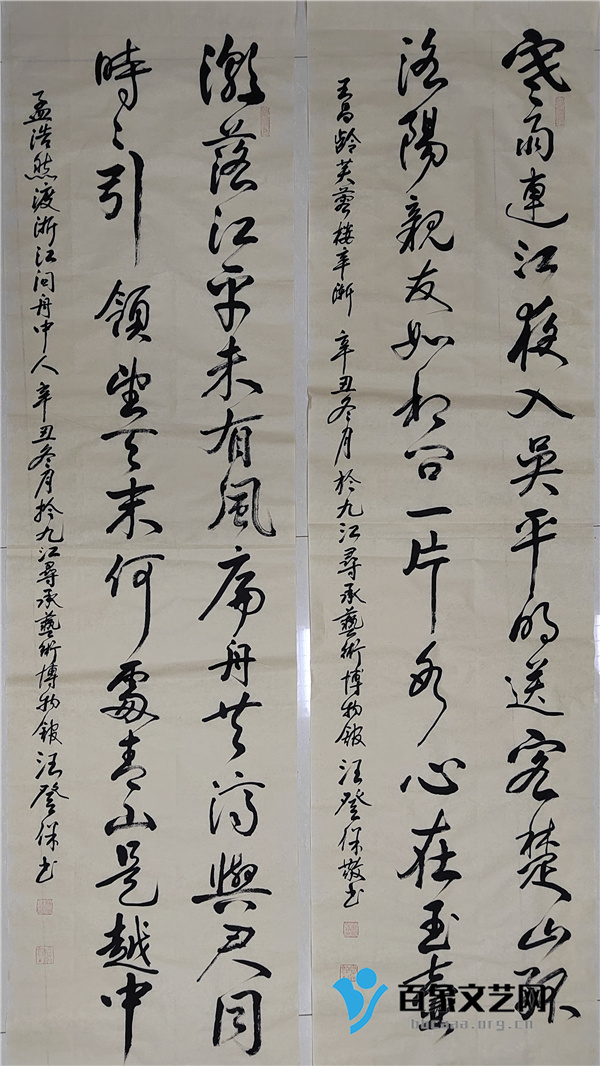 寒雨連江夜入吳平明送客楚山孤
洛陽親友如相問一片冰心在玉壺
王昌齡芙蓉樓辛漸 辛丑冬月於九江尋承藝術博物館 汪登保敬书
潮落江平未有風扁舟共濟與君同
時々引領望天末何處青山是越中
孟浩然渡浙江問舟中人辛丑冬月於九江尋承藝術博物館汪登保书
百象文艺网